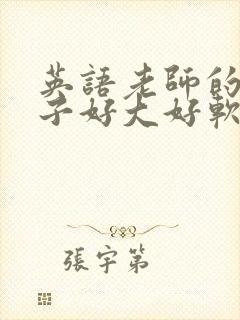 英語老師的
子好大好軟
張宇第